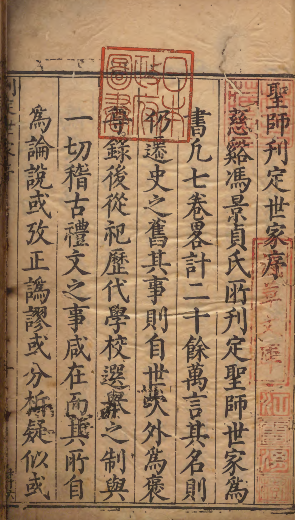 聖師刋定世家序
慈谿馮景貞氏所刋定聖師世家爲
書凢七卷畧計二十餘萬言其名則
仍遷史之舊其事則自世次外爲褒
尊錄後從祀歷代學校選舉之制與
一切稽古禮文之事咸在而其所自
爲論說或攷正譌謬或分析疑似或
日本
政府
圖書